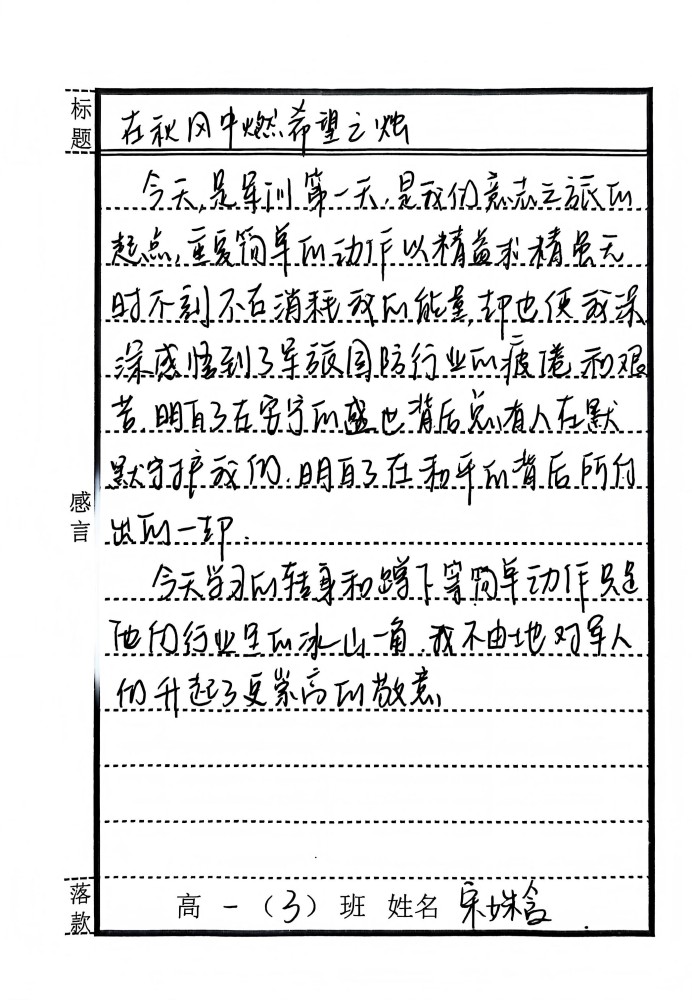 标题
在秋风中燃希望之烛
今天,是军训第一天,是我们意志之旅的
起点,重复简单的动作以精益求精虽无
时不刻不在消耗我的能量,却也使我深
深感悟到了军旅国防行业的疲倦和艰
苦,明白了在安宁的盛世背后总有人在默
默守护我们,明白了在和平的背后所付
出的一切.
感言
今天学习的转身和蹲下等简单动作只是
他们行业里的冰山一角,我不由地对军人
们升起了更崇高的敬意,
落款
高一(3)班 姓名 宋姝含